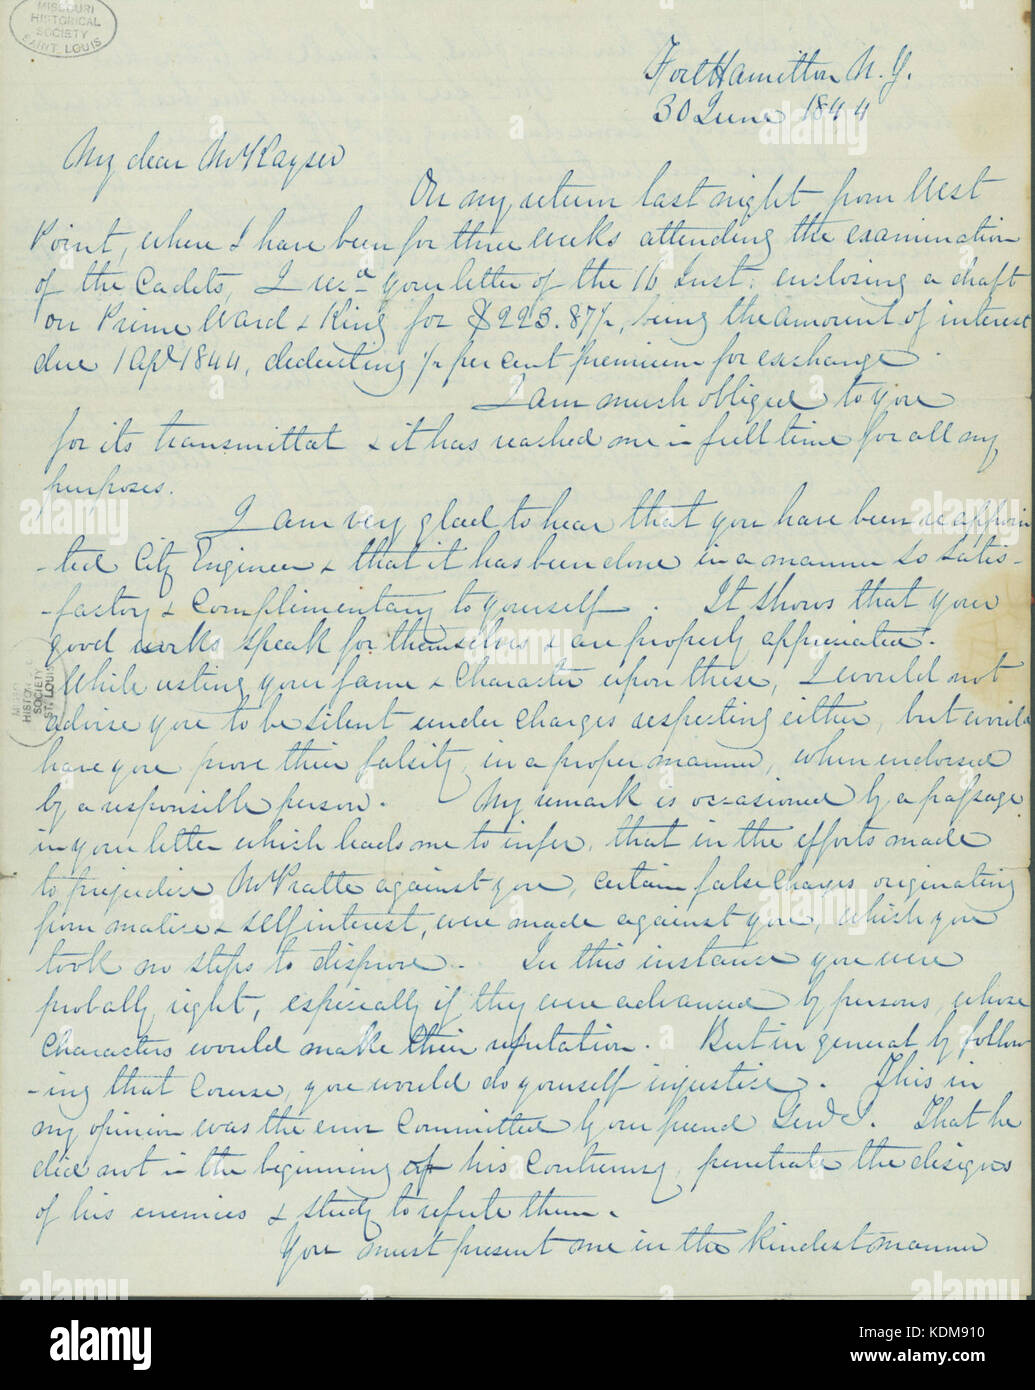 MISSOURI
HISTORICAL
SOCIETY
SAINT LOUIS
Fort Hamilton N. Y.
30 June 1844
My dear Mr Kayser
On my return last night from West
Point, where I have been for three weeks attending the examination
of the Cadets, I recd your letter of the 16 Inst: enclosing a draft
on Prime Ward & King for $223.87/, being the amount of interest
due 1 Apl 1844, deducting / per cent premium for exchange.
I am much obliged to you
for its transmittal & it has reached me in full time for all my
purposes.
I am very glad to hear that you have been reappoin
-ted City Engineer & that it has been done in a manner so satis-
-factory & complimentary to yourself. It shows that your
good works speak for themselves & are properly appreciated.
While resting your fame & character upon these, I would not
advise you to be silent under charges respecting either, but would
have you prove their falsity, in a proper manner, when endorsed
by a responsible person. My remark is occasioned by a passage
in your letter which leads me to infer, that in the efforts made
to prejudice Mr Pratte against you, certain false charges originating
from malice & self interest, were made against you, which you
took no steps to disprove. In this instance you were
probably right, especially if they were advanced by persons, whose
characters would make their refutation. But in general by follow
-ing that course, you would do yourself injustice. This in
my opinion was the error committed by our friend Genl S. That he
did not in the beginning of his controversy, penetrate the designs
of his enemies & study to refute them.
You must present me in the kindest manner
alamy
alamy stock photo
KDM910
www.alamy.com